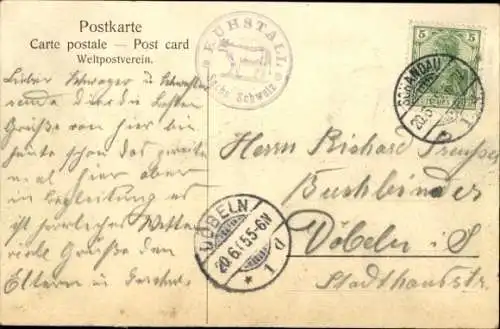 Postkarte
Carte postale — Post card
Weltpostverein.
KUHSTALL
Sächs. Schweiz
5
SCHANDAU
20.6
Lieber Schwager u Schwester
sende Dir die besten
Grüße von hier bin
heute schon das zweite
mal hier aber
in Begleitung es
ist herrliches Wetter
viele Grüße den
Eltern u
Herrn Richard
Buchbinder
Döbeln i. S
Stadthausstr.
DÖBELN
20.6. 5-6N
* 1 d